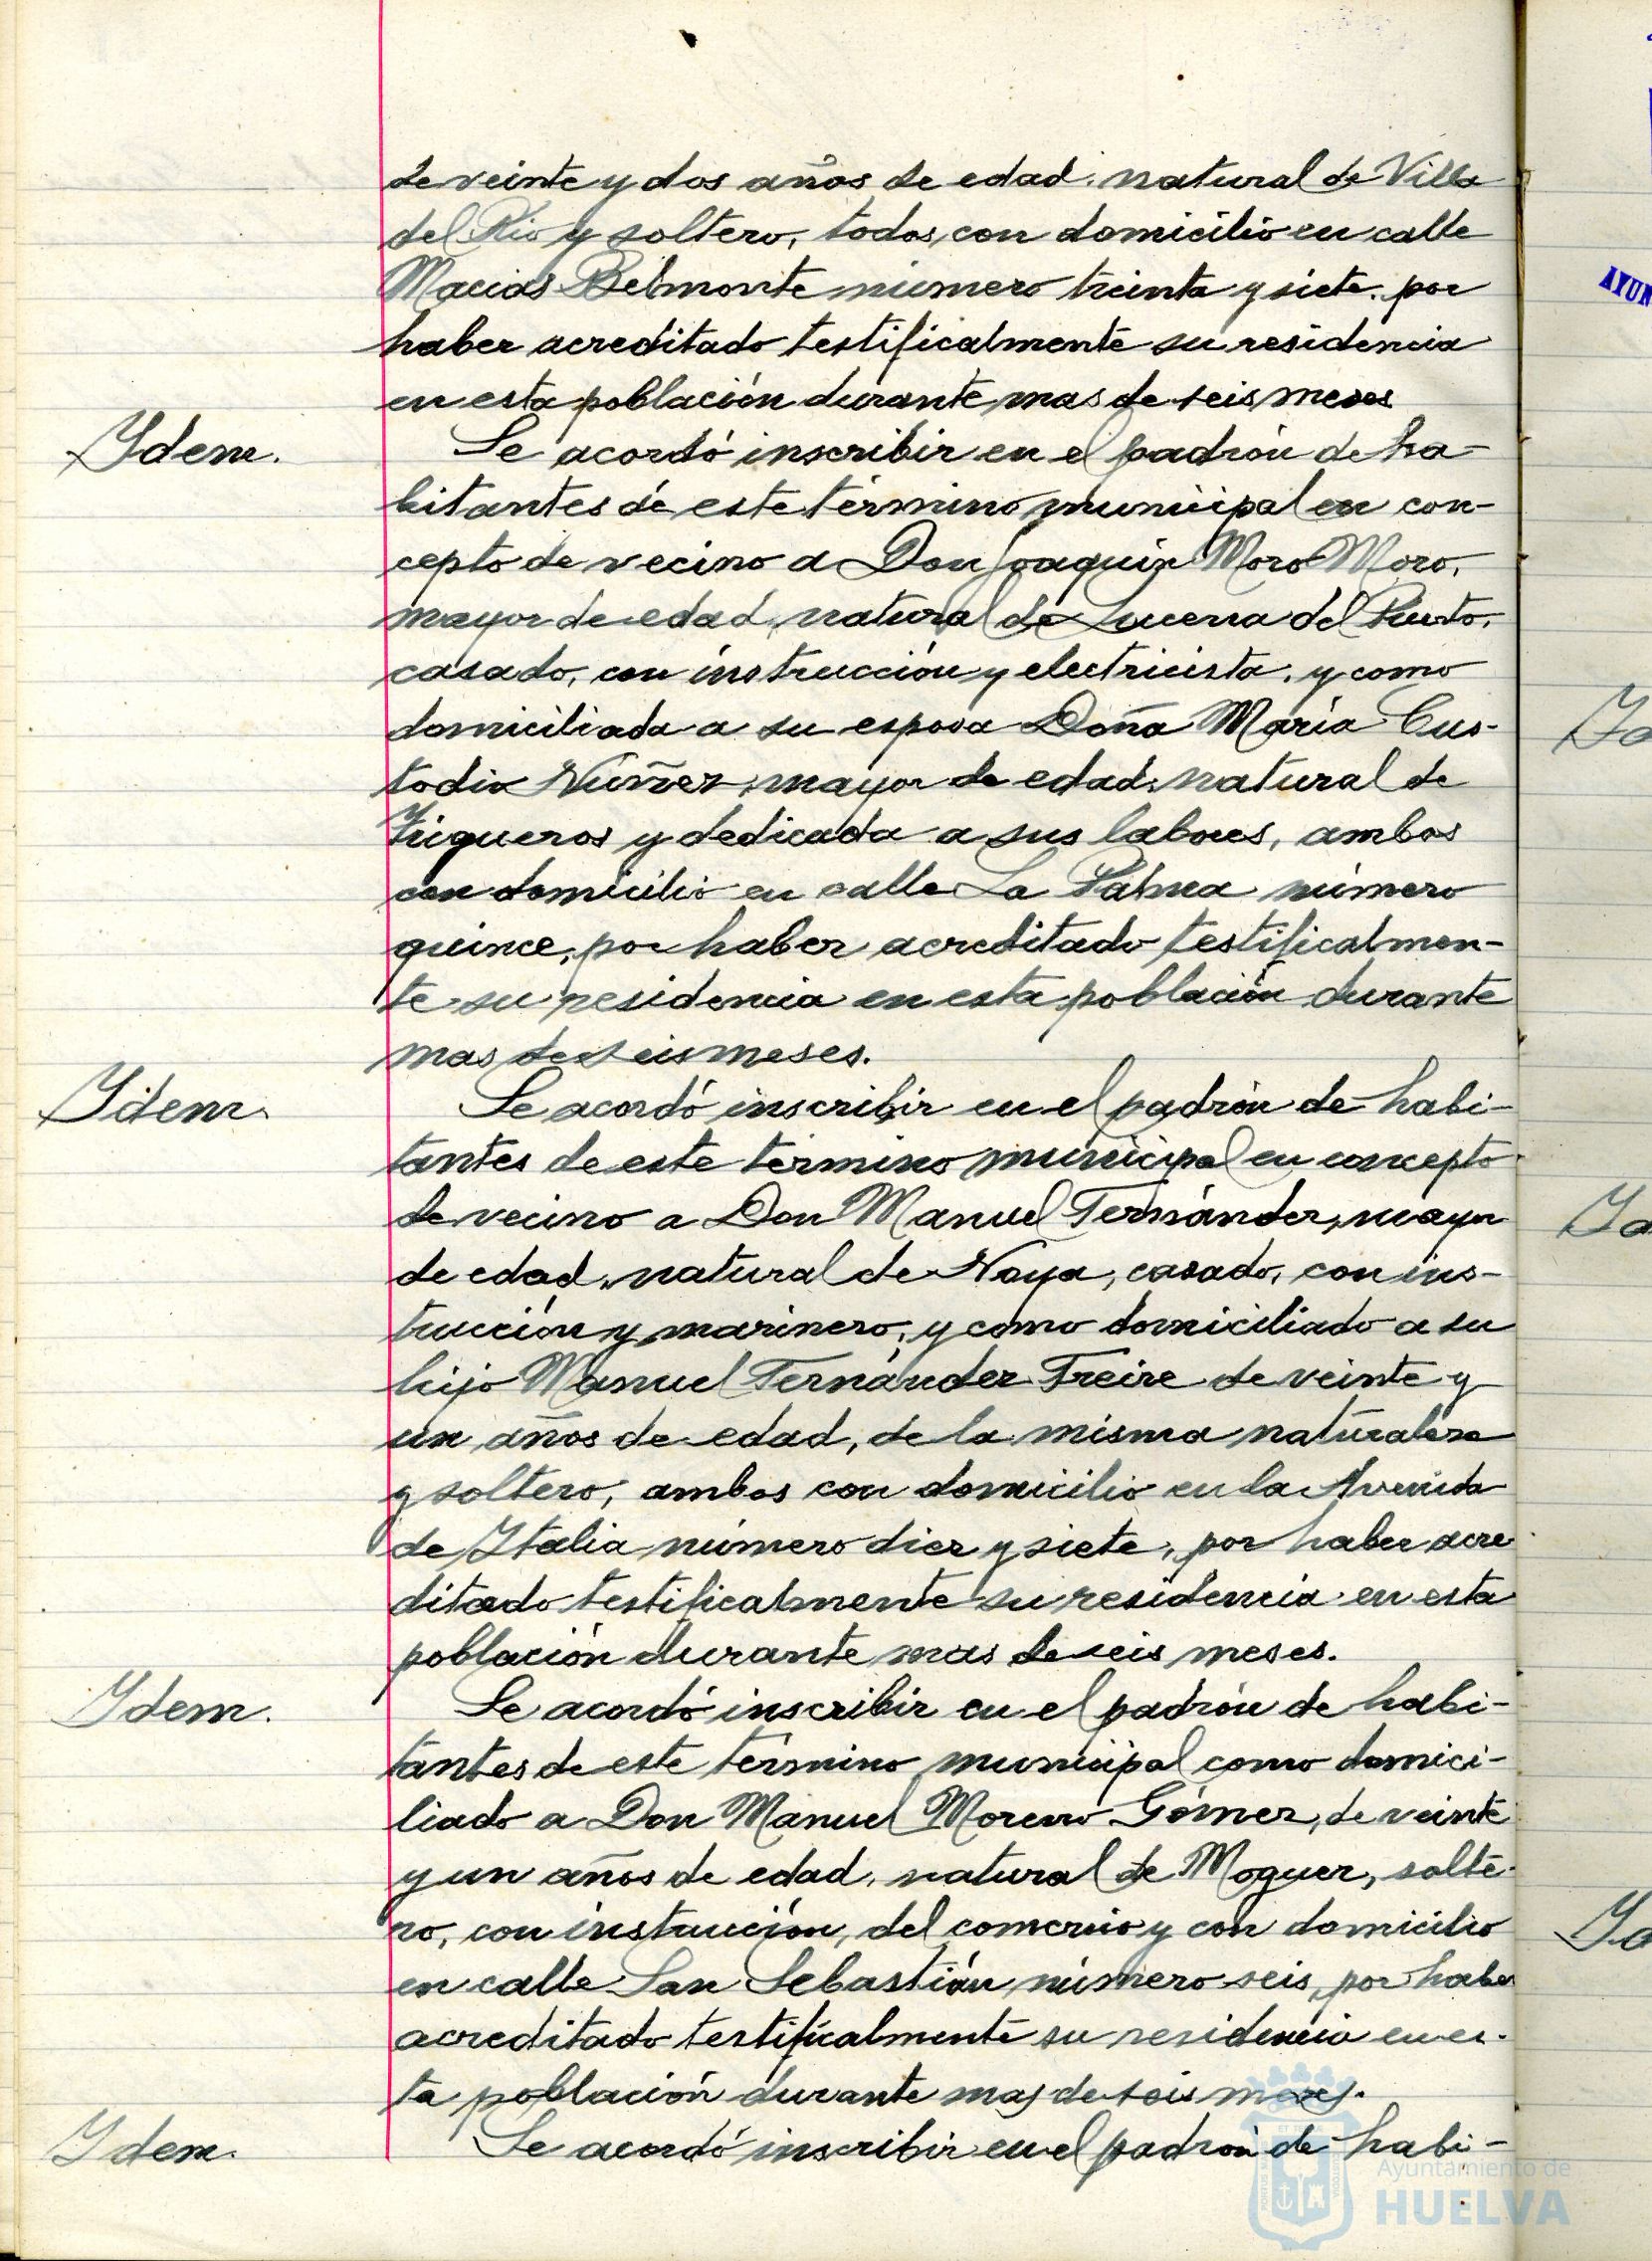 de veinte y dos años de edad, natural de Villa
del Rio y soltero, todos con domicilio en calle
Macias Belmonte número treinta y siete, por
haber acreditado testificalmente su residencia
en esta población durante mas de seis meses
Ydem.
Se acordó inscribir en el padrón de ha-
bitantes de este término municipal en con-
cepto de vecino a Don Joaquin Moro Moro,
mayor de edad, natural de Lucena del Puerto,
casado, con instrucción y electricista, y como
domiciliada a su esposa Doña Maria Cus-
todio Núñez, mayor de edad, natural de
Trigueros y dedicada a sus labores, ambos
con domicilio en calle La Palma número
quince, por haber acreditado testificalmen-
te su residencia en esta población durante
mas de seis meses.
Ydem.
Se acordó inscribir en el padrón de habi-
tantes de este término municipal en concepto
de vecino a Don Manuel Fernández, mayor
de edad, natural de Noya, casado, con ins-
trucción y marinero, y como domiciliado a su
hijo Manuel Fernández Freire de veinte y
un años de edad, de la misma naturaleza
y soltero, ambos con domicilio en la Avenida
de Italia número diez y siete, por haber acre
ditado testificalmente su residencia en esta
población durante mas de seis meses.
Ydem.
Se acordó inscribir en el padrón de habi-
tantes de este término municipal como domici-
liado a Don Manuel Moreno Gómez, de veinte
y un años de edad, natural de Moguer, solte-
ro, con instrucción, del comercio y con domicilio
en calle San Sebastián número seis, por haber
acreditado testificalmente su residencia en es-
ta población durante mas de seis meses.
Ydem.
Se acordó inscribir en el padrón de habi-
Ayuntamiento de
HUELVA